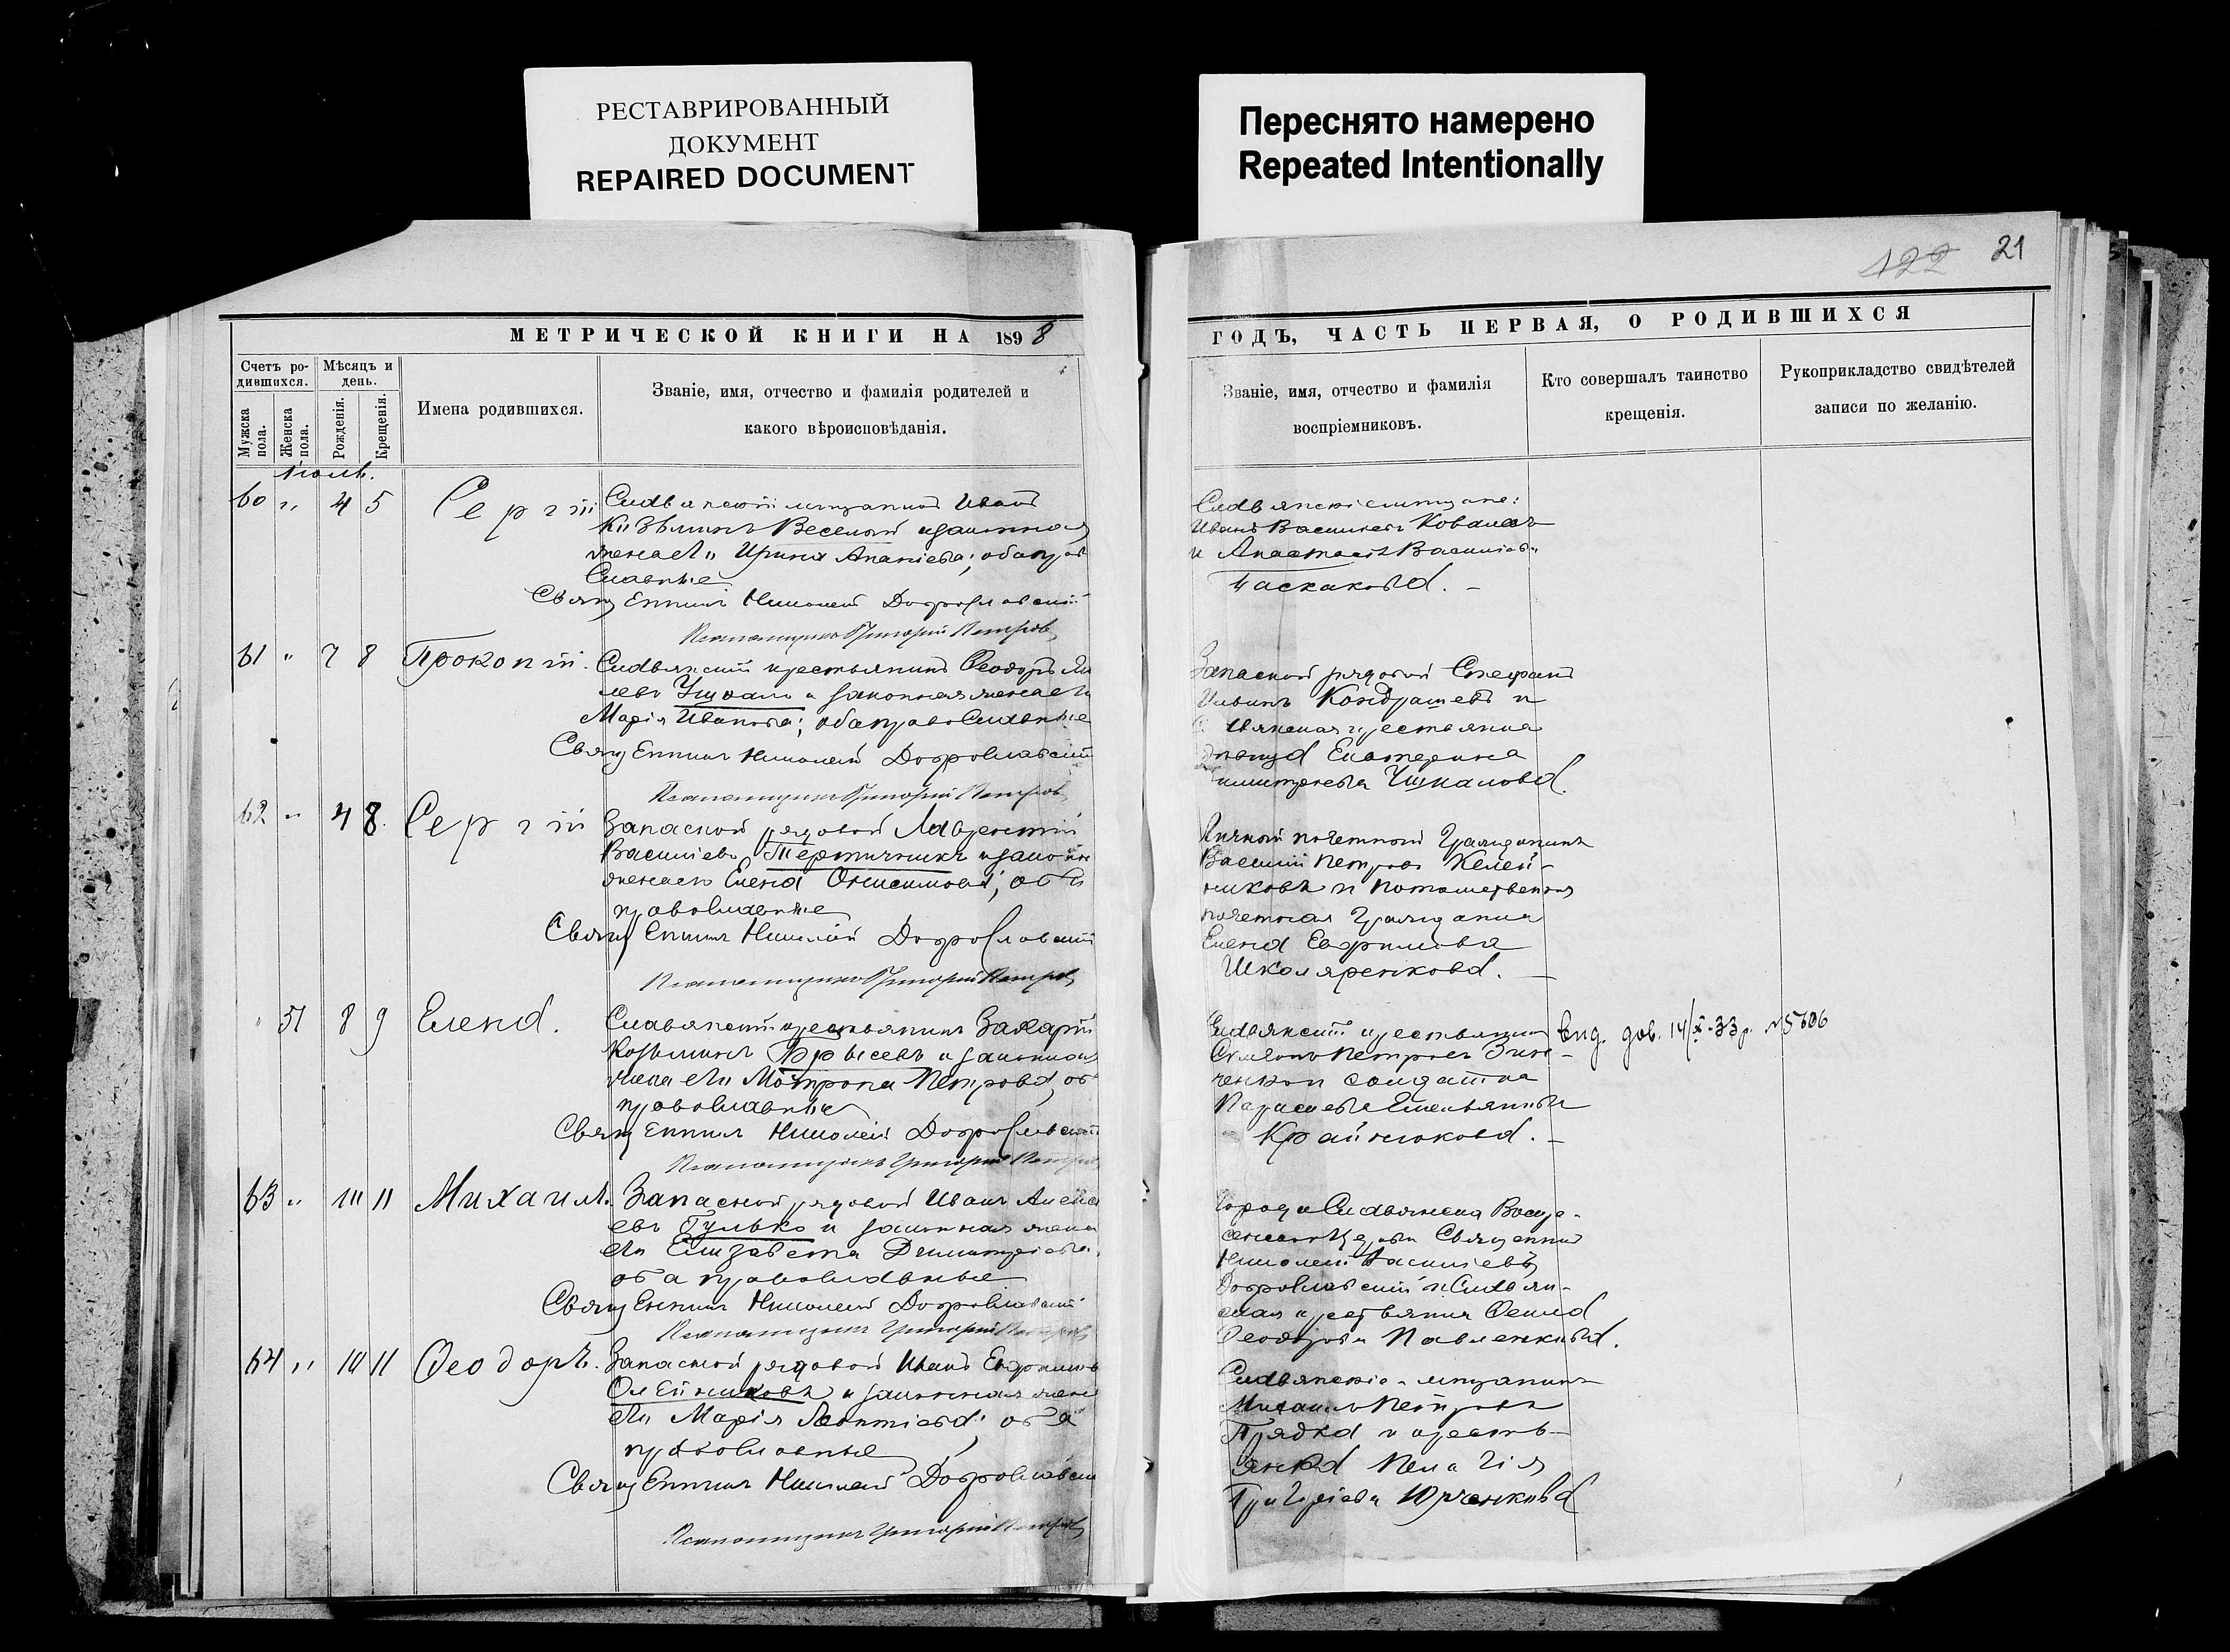 РЕСТАВРИРОВАННЫЙ
ДОКУМЕНТ
REPAIRED DOCUMENT
Переснято намерено
Repeated Intentionally
122 21
МЕТРИЧЕСКОЙ КНИГИ НА 1898
Счетъ ро-
дившихся.
Мѣсяцъ и
день.
Мужска
пола.
Женска
пола.
Рожденія.
Крещенія.
Имена родившихся.
Званіе, имя, отчество и фамилія родителей и
какого вѣроисповѣданія.
Іюль.
60 " 4 5 Сергій Славянскій мѣщанинъ Иванъ
Козьминъ Веселый и законная
жена его Ирина Ананіева; оба право
славные
Священникъ Николай Доброславскій
Псаломщикъ Григорій Петровъ
61 " 7 8 Прокопій. Славянскій крестьянинъ Ѳеодоръ
и законная жена его
Марія Иванова; оба православные
Священникъ Николай Доброславскій
Псаломщикъ Григорій Петровъ
62 " 4 8. Сергій Запасной рядовой Лаврентій
Васильевъ Тертичникъ и законн
жена его Елена Онисимова; оба
православные
Священникъ Николай Доброславскій
Псаломщикъ Григорій Петровъ
51 8 9 Елена. Славянскій крестьянинъ Захарій
Козьминъ и законная
жена его Мотрона Петрова, об
православные
Священникъ Николай Доброславскій
Псаломщикъ Григорій Петровъ
63 " 10 11 Михаилъ. Запасной рядовой Иванъ Алексѣ
евъ Гулько и законная жена
его Елизавета Димитріева,
оба православные
Священникъ Николай Доброславскій
Псаломщикъ Григорій Петровъ
64 " 10 11 Ѳеодоръ. Запасной рядовой Иванъ Ефримовъ
Олейниковъ и законная жена
его Марія Леонтіева; оба
православные
Священникъ Николай Доброславскій
Псаломщикъ Григорій Петровъ
ГОДЪ, ЧАСТЬ ПЕРВАЯ, О РОДИВШИХСЯ
Званіе, имя, отчество и фамилія
воспріемниковъ.
Кто совершалъ таинство
крещенія.
Рукоприкладство свидѣтелей
записи по желанію.
Славянскіе мѣщане:
Иванъ Васильевъ Ковалевъ
и Анастасія Васильева
Запасной рядовой Стефанъ
Ильинъ Кондрашевъ и
вянская крестьянка
Екатерина
имитріева Чикалова.
Личный почетный гражданинъ
Василій Петровъ Келей-
никовъ и потомственная
почетная гражданка
Елена Ефримова
Школяренкова. —
Славянскій крестьянинъ
Симеонъ Петровъ Зин-
ченко и солдатка
Параскева Емельянова
Крайнюкова. —
Вид. дов. 14/X-33 р. №5606
Города Славянска Воскре-
сенской Церкви Священникъ
Николай Васильевъ
Доброславскій и Славян-
ская крестьянка Ѳекла
Ѳеодорова Павленкова.
Славянскіе - мѣщанинъ
Михаилъ Петровъ
Прядка и кресть-
янка Пелагія
Григорьева Юрченкова